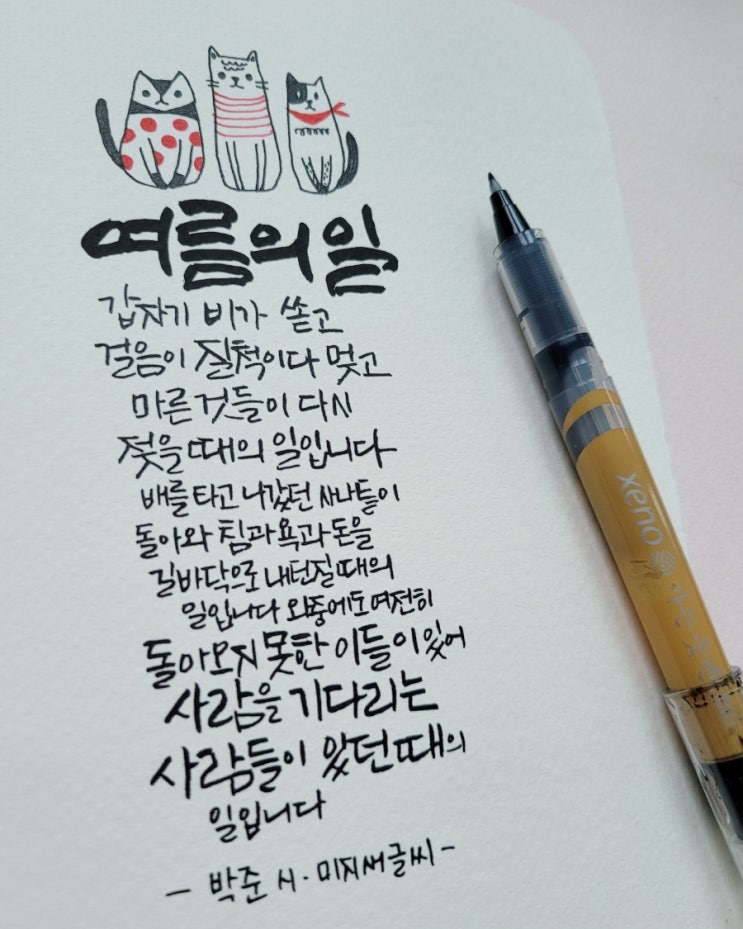 여름의 일
갑자기 비가 쏟고
걸음이 질척이다 멎고
마른 것들이 다시
젖을 때의 일입니다
배를 타고 나갔던 사나들이
돌아와 침과 욕과 돈을
길바닥으로 내던질 때의
일입니다 와중에도 여전히
돌아오지 못한 이들이 있어
사람을 기다리는
사람들이 있던 때의
일입니다
- 박준 시·미지새글씨 -
xeno